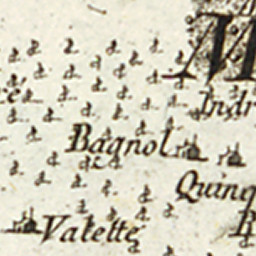 M
cé
Indr
Bagnol
Quinq
Valette
R